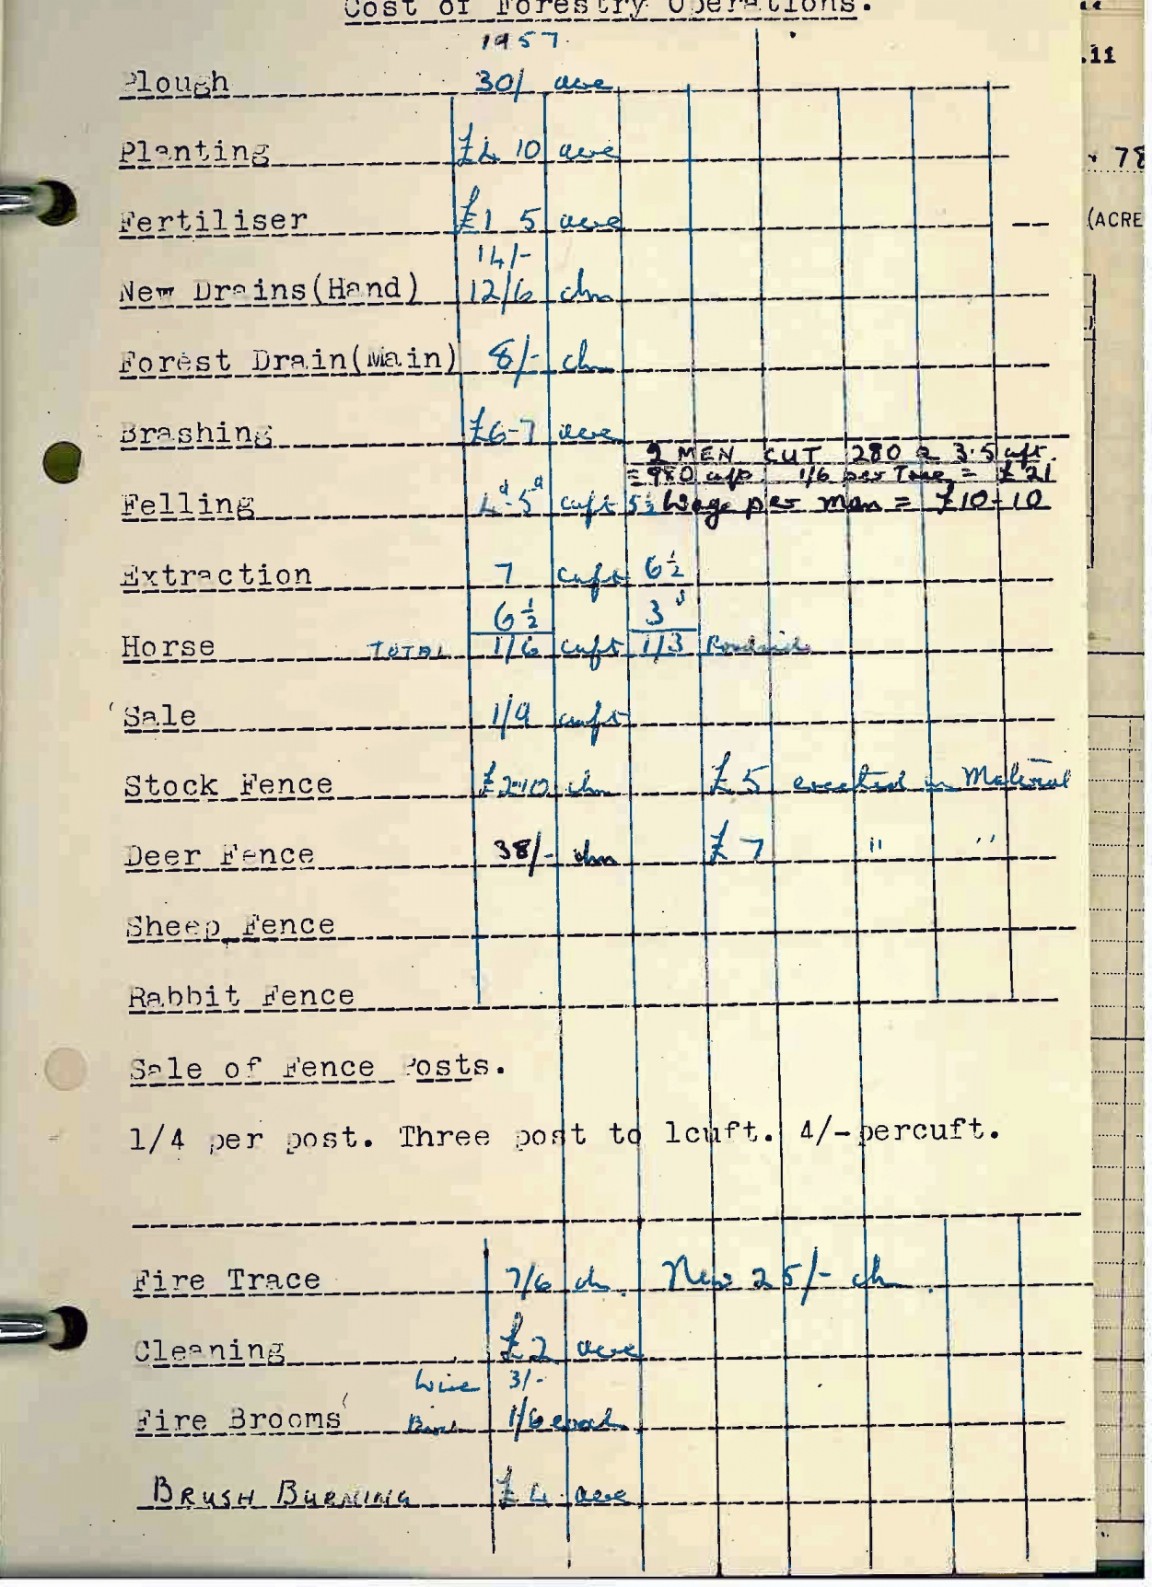 Cost of Forestry Operations.
1957
Plough 30/- acre
Planting £4 10 acre
Fertiliser £1 5 acre
14/-
New Drains(Hand) 12/6 chn
Forest Drain(Main) 8/- chn
Brashing £6-7 acre
2 MEN CUT 280 @ 3.5 cuft.
= 980 cuft 1/6 per Tree = £21
Felling 4d-5d cuft 5½ Wage per man = £10-10
Extraction 7 cuft 6½
6½ 3
Horse TOTAL 1/6 cuft 1/3 Roadside
Sale 1/9 cuft
Stock Fence £2-10 chn £5 erected in Material
Deer Fence 38/- chn £7 " "
Sheep Fence
Rabbit Fence
Sale of Fence Posts.
1/4 per post. Three post to 1cuft. 4/-percuft.
Fire Trace 7/6 ch. New 25/- ch
Cleaning £2 acre
Wire 3/-
Fire Brooms 1/6 each
BRUSH BURNING £4 acre
.11
78
(ACRE